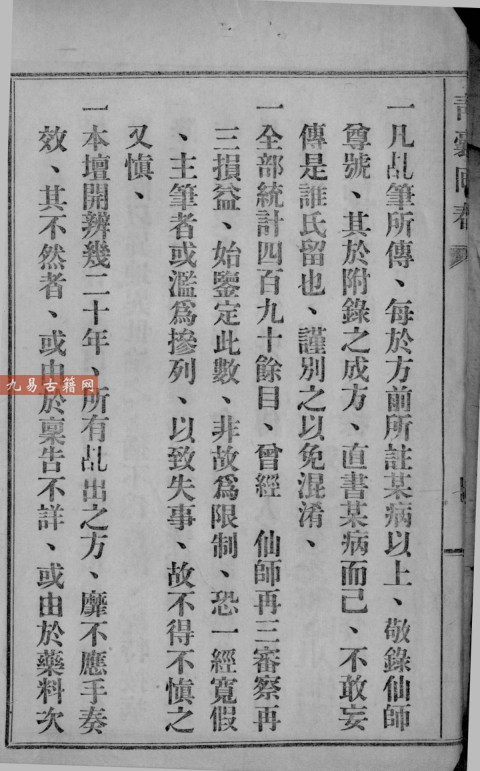 青囊回春
一凡乩筆所傳、每於方前所註某病以上、敬錄仙師
尊號、其於附錄之成方、直書某病而已、不敢妄
傳是誰氏留也、謹別之以免混淆、
一全部統計四百九十餘目、曾經　仙師再三審察再
三損益、始鑒定此數、非故爲限制、恐一經寬假
、主筆者或濫爲摻列、以致失事、故不得不慎之
又慎、
一本壇開辦幾二十年、所有乩出之方、靡不應手奏
效、其不然者、或由於稟告不詳、或由於藥料次
九易古籍网